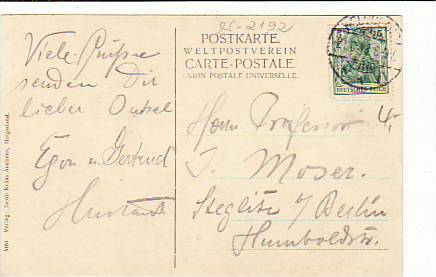 Viele Grüße
senden Dir
lieber Onkel
Egon u. Gertrud
25-2192
POSTKARTE.
WELTPOSTVEREIN
CARTE-POSTALE
UNION POSTALE UNIVERSELLE.
DEUTSCHES REICH
4,-
Herrn Professor
J. Moser.
Steglitz / Berlin
Humboldtstr.
Verlag: Jacob Krüss Aeukens, Helgoland.